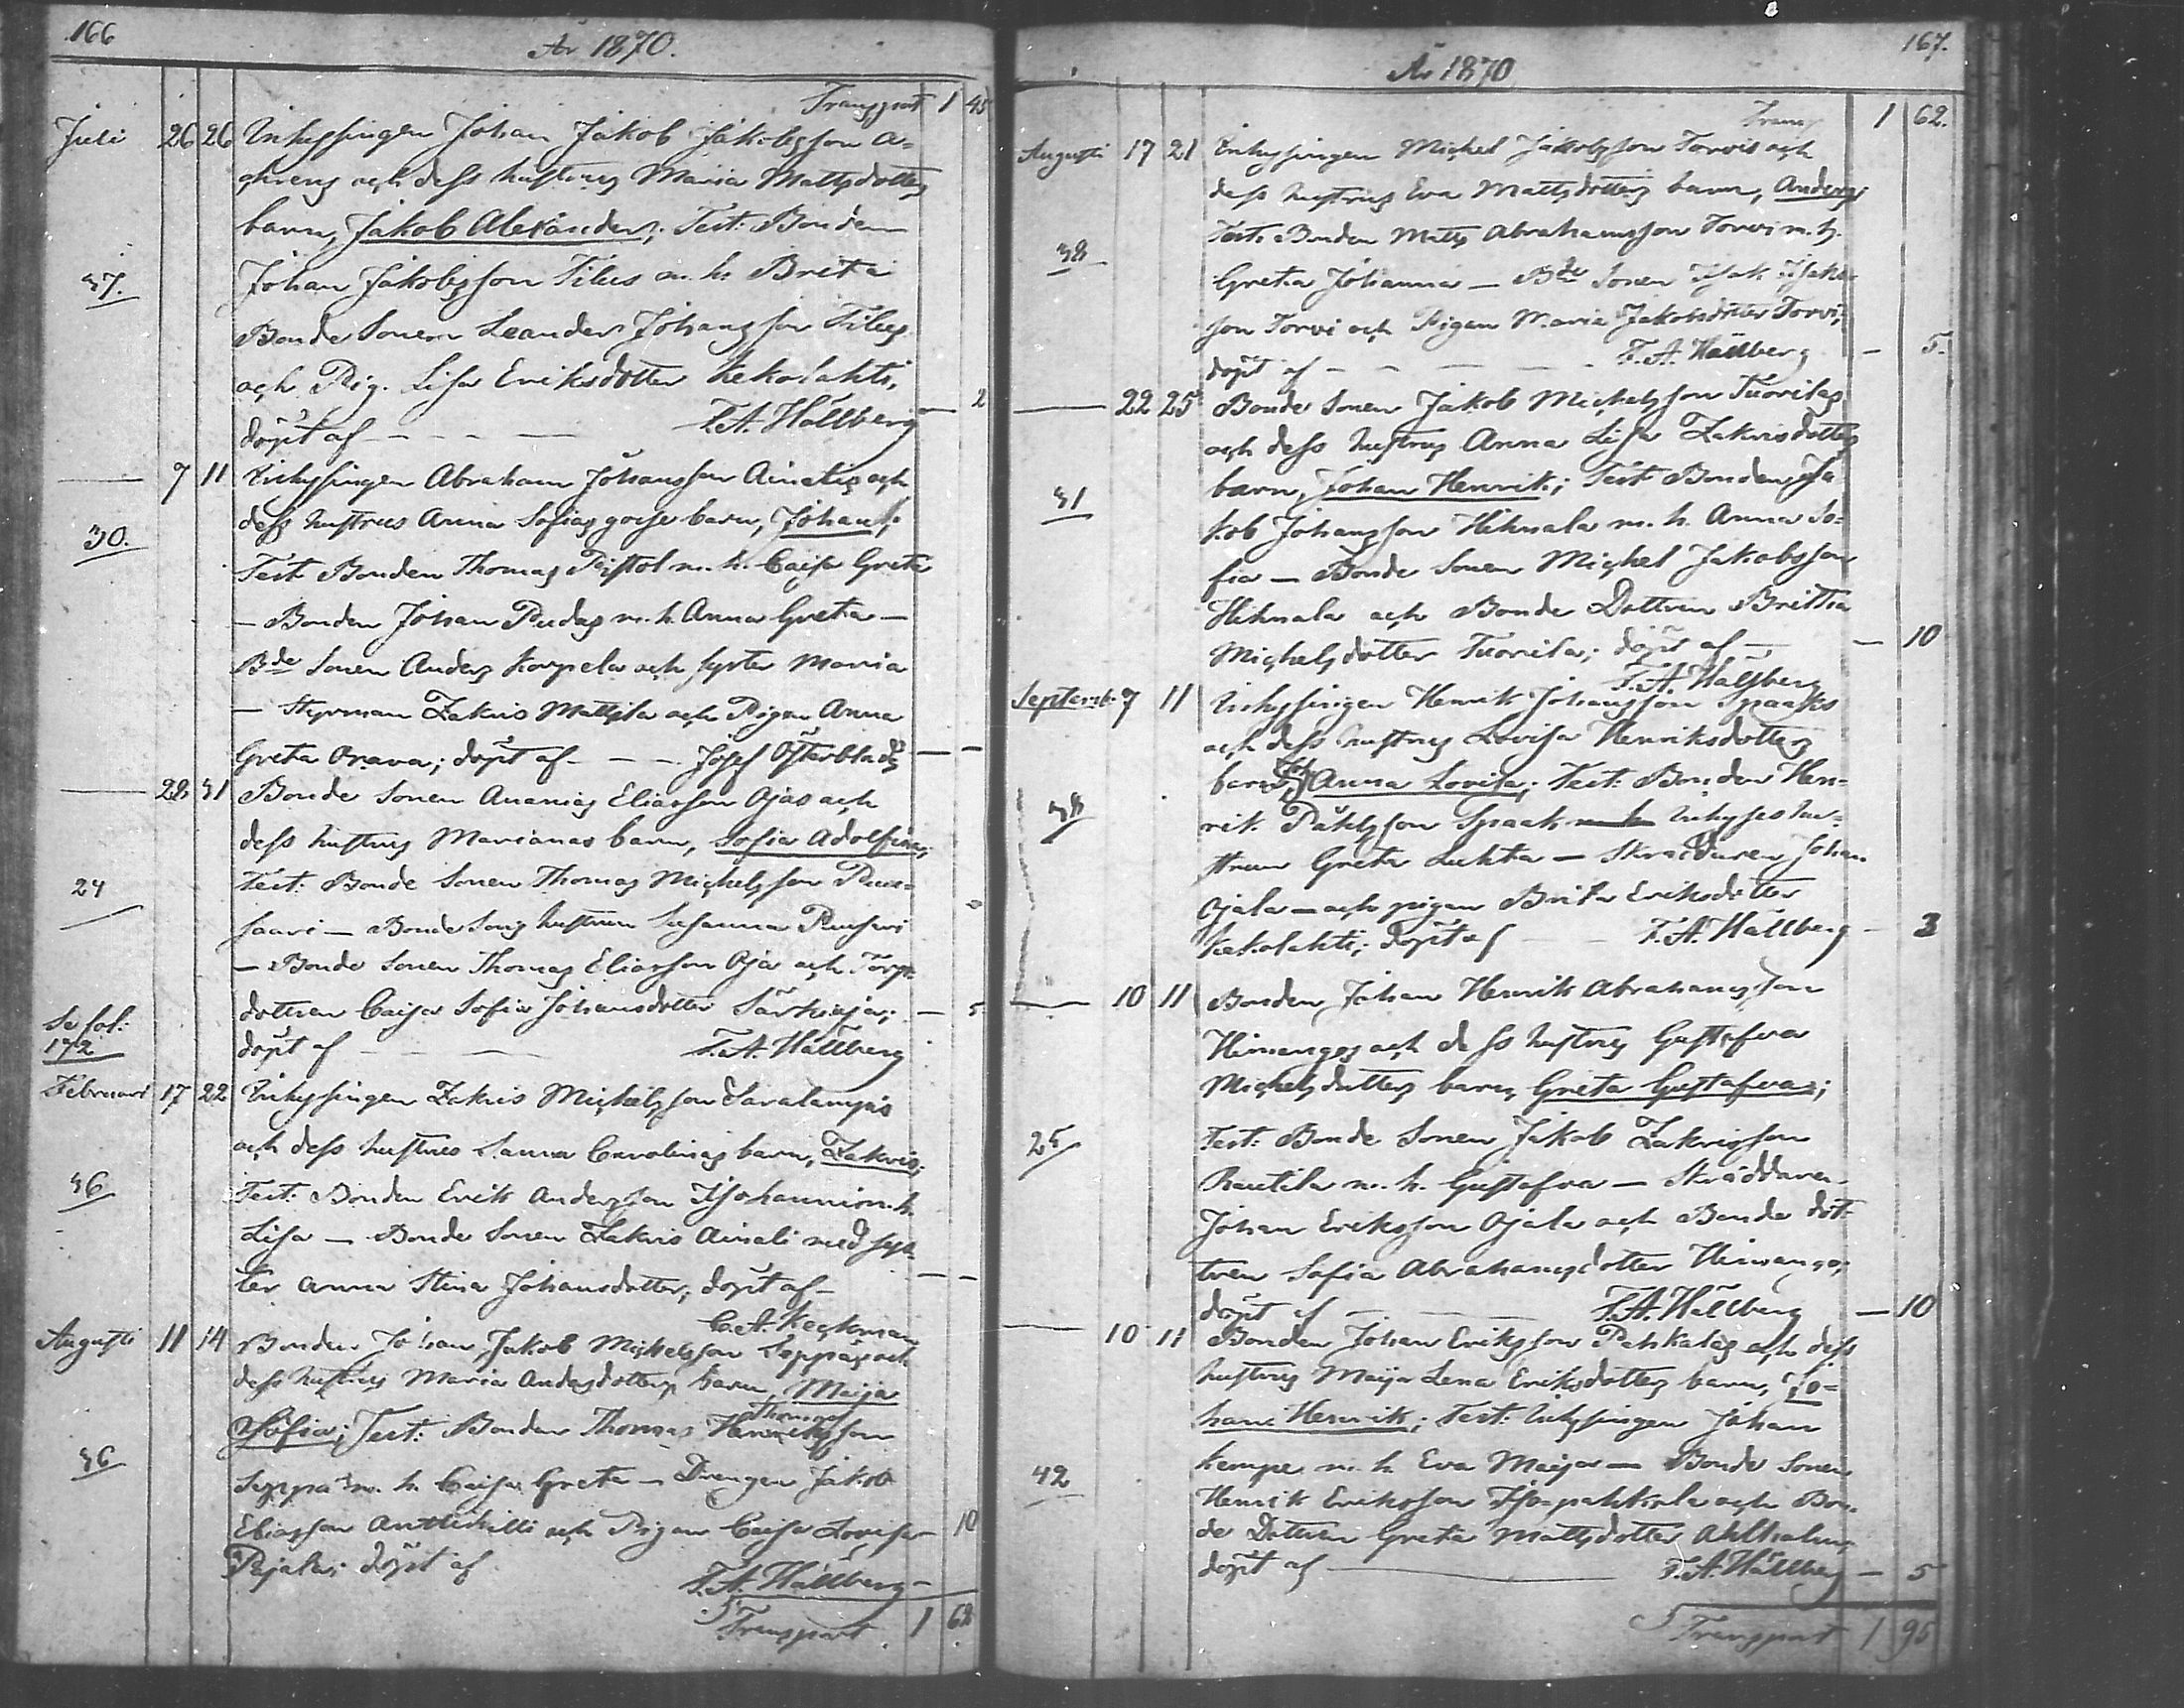 166
År 1870.
Transport 1 45
Juli 26 26 Inhysingen Johan Jakob Jakobsson A-
ahrens och dess hustrus Maria Mattsdotters
barn, Jakob Alexander; Test: Bonden
37. Johan Jakobsson Tilus m. h. Brita
Bonde Sonen Leander Johansson Tilus
och Pig. Lisa Eriksdotter Kekolahti,
döpt af - - - F. A. Hällberg — 2
— 7 11 Inhysingen Abraham Johansson Ainalis och
dess hustrus Anna Sofias gosse barn, Johan;
30. Test Bonden Thomas Pistol m. h. Caisa Greta
— Bonden Johan Rudas m. h. Anna Greta —
Bde Sonen Anders Korpela och syster Maria
— Styrman Zakris Mattila och Pigan Anna
Greta Orava; döpt af - - - Josef Österblad — —
— 28 31 Bonde Sonen Ananias Eliasson Ojas och
dess hustrus Marianas barn, Sofia Adolfina;
24 Test: Bonde Sonen Thomas Michelsson Ruu-
saari — Bonde Sons hustrun Susanna
— Bonde Sonen Thomas Eliasson Oja och Torp
dottren Caisa Sofia Johansdotter Särkioja; — 5
Se fol: 172
döpt af — F. A. Hällberg
Februari 17 22 Inhysingen Zakris Michelsson Saralampis
och dess hustrus Sanna Carolinas barn, Zakris;
36 Test: Bonden Erik Andersson Isohanni m. h.
Lisa — Bonde Sonen Zakris Ainali med sys-
ter Anna Stina Johansdotter; döpt af — — —
C. A. Keckman
Augusti 11 14 Bonden Johan Jakob Michelsson Seppäs och
dess hustrus Maria Andersdotters barn, Maija
Thomas
Sofia; Test: Bonden Thomas Henriksson
36 Seppä m. h. Caisa Greta — Drengen Jakob
Eliasson Anttikilli och Pigan Caisa Lovisa — 10
Pajala; döpt af
F. A. Hällberg —
Transport 1 62
167.
År 1870
Transp 1 62.
Augusti 17 21 Inhysingen Michel Jakobsson Torvis och
dess hustrus Eva Mattsdotters barn, Anders;
38 Test: Bonden Matts Abrahamsson Torvi m. h.
Greta Johanna — Bde Sonen Isak Isaks-
son Torvi och Pigan Maria Jakobsdotter Torvi;
döpt af - - - F. A. Hällberg — 5.
— 22 25 Bonde Sonen Jakob Michelsson Tuorilas
och dess hustrus Anna Lisa Zakrisdotters
31 barn, Johan Henrik; Test Bonden Ja
kob Johansson Hihnala m. h. Anna So-
fia — Bonde Sonen Michel Jakobsson
Hihnala och Bonde Dottren Britta
Michelsdotter Tuorila; döpt af — — 10
F. A. Hällberg
Septemb. 7 11 Inhysingen Henrik Johansson Spaaks
och dess hustrus Lovisa Henriksdotters
barn, Anna Lovisa; Test: Bonden Hen-
38 rik Påhlsson Spaak m h Inhyses hu-
strun Greta Luhta — Skräddaren Johan
Ojala — och pigan Brita Eriksdotter
Kekolahti; döpt af — F. A. Hällberg — 3
— 10 11 Bonden Johan Henrik Abrahamsson
Himangos och dess hustrus Gustafva
Michelsdotters barn, Greta Gustafva;
25 Test: Bonde Sonen Jakob Zakrisson
Rautila m. h. Gustafva — Skräddaren
Johan Eriksson Ojala och Bonde dot-
tren Sofia Abrahamsdotter Himango;
döpt af — F. A. Hällberg — 10
— 10 11 Bonden Johan Eriksson Pahkalas och dess
hustrus Maija Lena Eriksdotters barn, Jo-
han Henrik; Test: Inhysingen Johan
42 Kempe m. h. Eva Maija — Bonde Sonen
Henrik Eriksson Iso-pahkala och Bon-
de Dottren Greta Mattsdotter
döpt af — F. A. Hällberg — 5
Transport 1 95